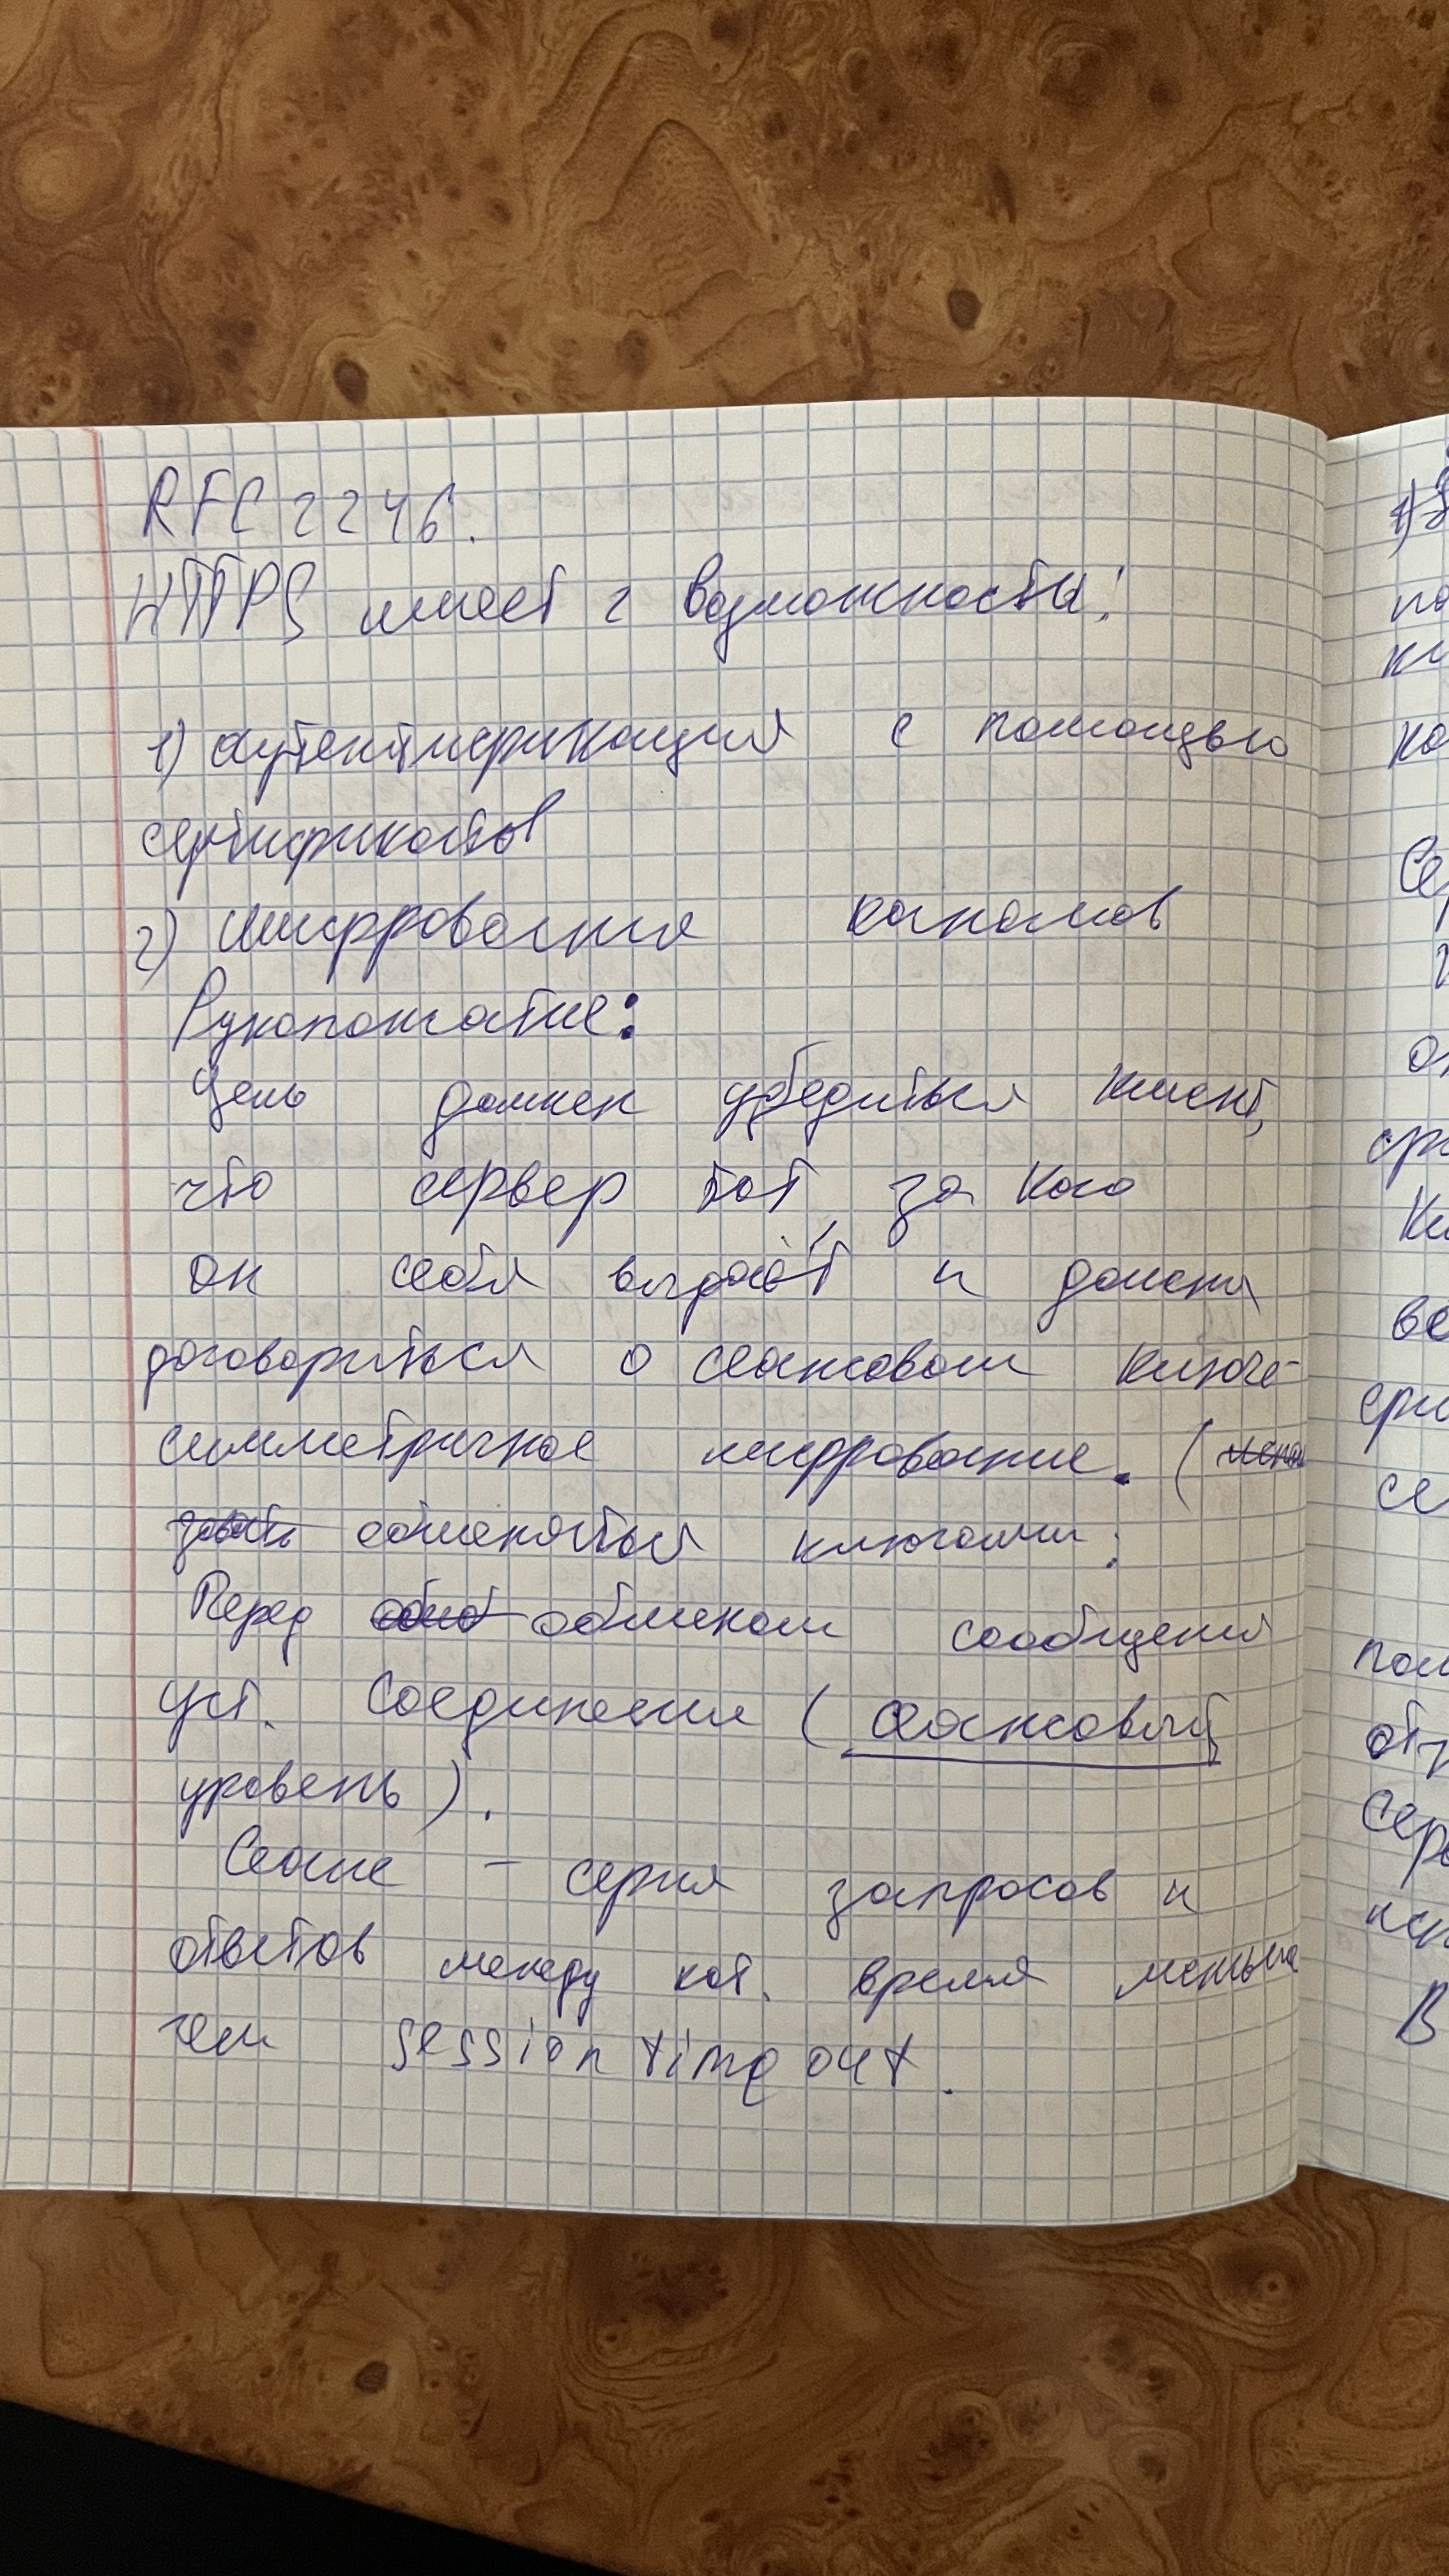 RFC 2246.
HTTPS имеет 2 возможности:
1) аутентификация с помощью
сертификатов
2) шифрования каналов
Рукопожатие:
Цель должен убедиться клиент,
что сервер тот, за кого
он себя выдаёт и должны
договориться о сеансовом ключе-
симметричное шифрование. (
обменяться ключами:
Перед обменом сообщений
уст. соединение (сеансовый
уровень).
Сеанс - серия запросов и
ответов между кот. время меньше
чем session timeout.